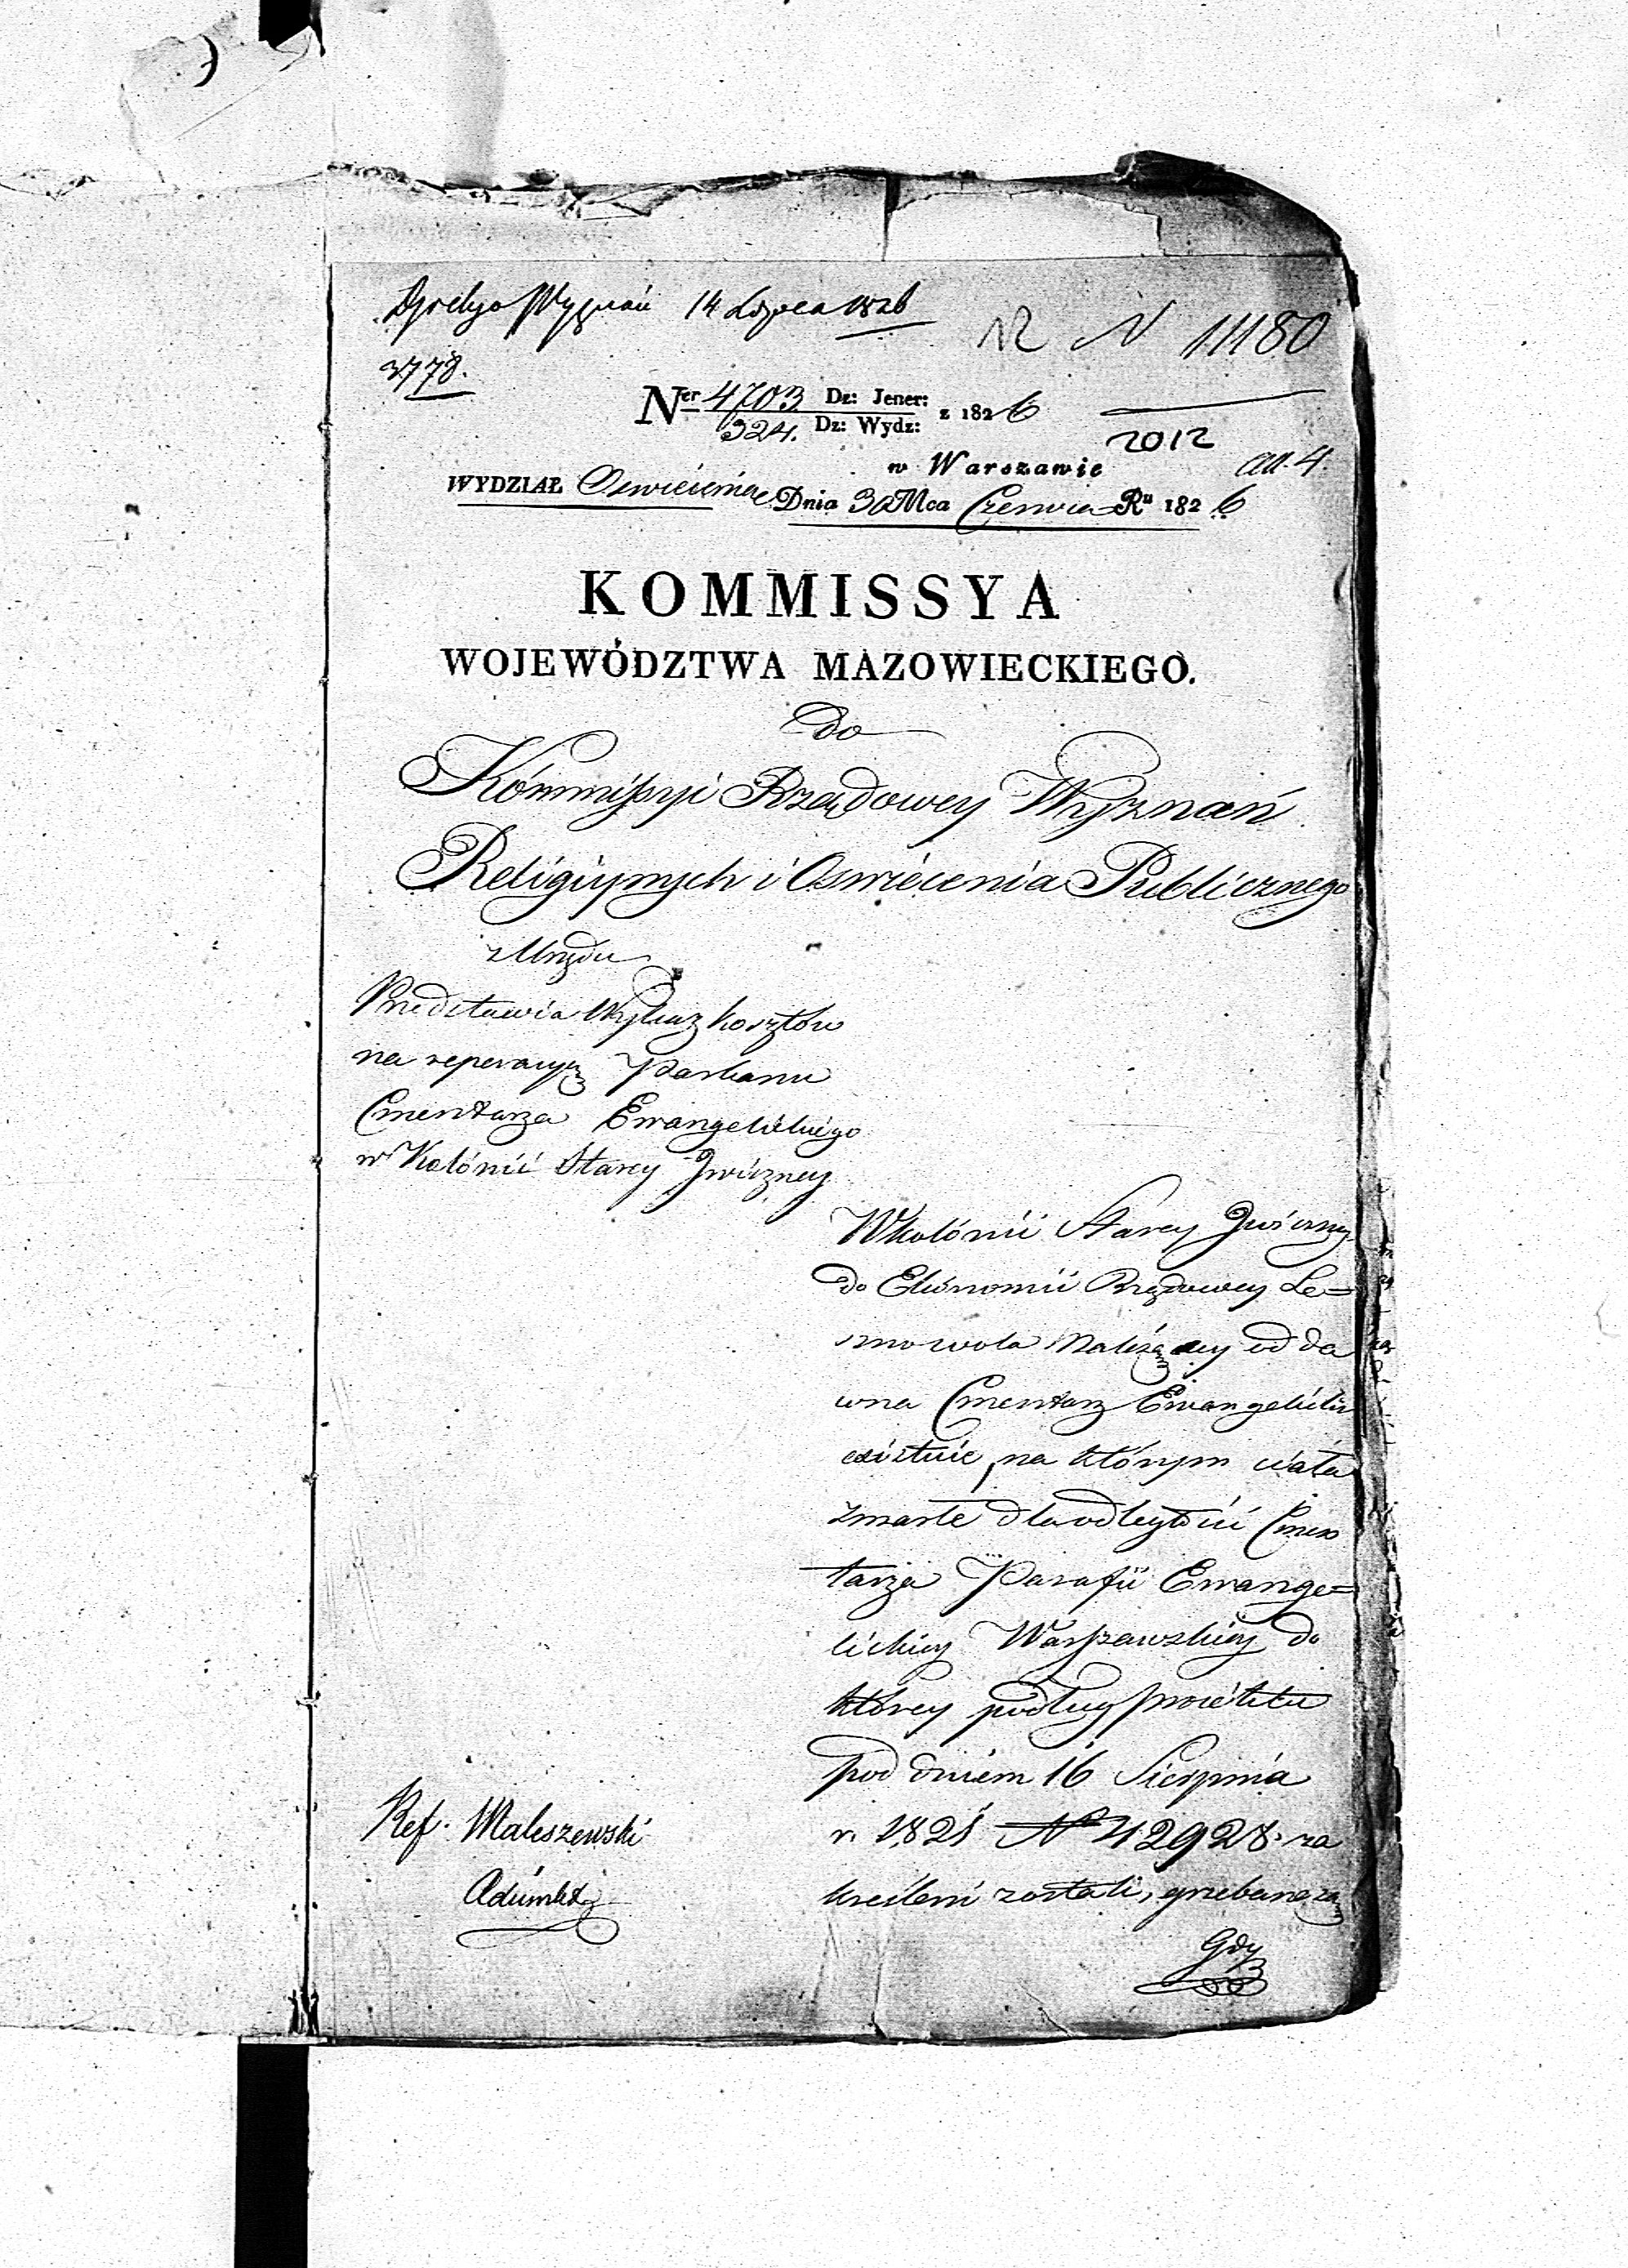 Wyznań 14 Lipca 1826
3778.
N 11180
2012
ad. 4.
Ner 4703 Dz: Jener: z 1826
324. Dz: Wydz:
w Warszawie
WYDZIAŁ Oswiecenia Dnia 30 Mca Czerwca Ru 1826
KOMMISSYA
WOJEWÓDZTWA MAZOWIECKIEGO.
Do
Kómmissyi Rządowey Wyznań
Religiynych i Oswiecenia Publicznego
z Urzędu
Przedstawia Wykaz kosztów
na reperacyą Parkanu
Cmentarza Ewangelickiego
w Kolónii Starey Iwiczney
W kolónii Starey Iwiczney
do Ekonomii Rządowey Le=
snowola Należącey od da
wna Cmentarz Ewangelicki
existuie, na którym ciała
zmarłe dla odległości Cmen
tarza Parafii Ewange=
lickiey Warszawskiey do
którey podług proiektu
pod dniem 16 Sierpnia
r. 1821 No 42928 za
kreśleni zostali, grzebane są
Gdy
Ref. Maleszewski
Adiunkt